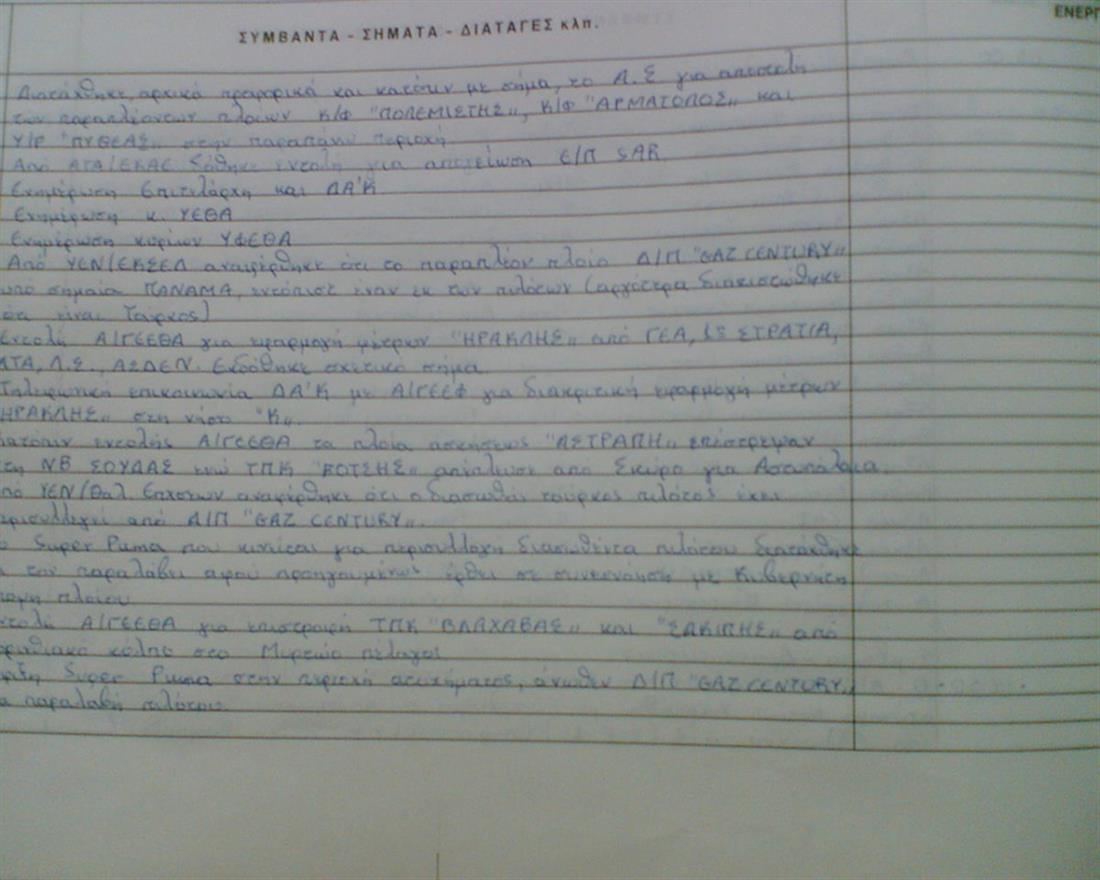 ΣΥΜΒΑΝΤΑ - ΣΗΜΑΤΑ - ΔΙΑΤΑΓΕΣ κλπ.
ΕΝΕΡΓ
Διατάχθηκε, αρχικά προφορικά και κατόπιν με σήμα, το Λ.Σ για αποστολή
των παραπλεόντων πλοίων Κ/Φ "ΠΟΛΕΜΙΣΤΗΣ", Κ/Φ "ΑΡΜΑΤΟΛΟΣ" και
Υ/Γ "ΠΥΘΕΑΣ" στην παραπάνω περιοχή
Από ΑΤΑ/ΕΚΑΕ δόθηκε εντολή για απογείωση Ε/Π SAR.
Ενημέρωση Επιτελάρχη και ΔΑ'Κ
Ενημέρωση κ. ΥΕΘΑ
Ενημέρωση κυρίων ΥΦΕΘΑ
Από ΥΕΝ/ΕΚΣΕΔ αναφέρθηκε ότι το παραπλέον πλοίο Δ/Π "GAZ CENTURY"
υπό σημαία ΠΑΝΑΜΑ, εντόπισε έναν εκ των πιλότων (αργότερα διαπιστώθηκε
ότι είναι Τούρκος)
Εντολή Α/ΓΕΕΘΑ για εφαρμογή μέτρων "ΗΡΑΚΛΗΣ" από ΓΕΑ, 1η ΣΤΡΑΤΙΑ,
ΑΤΑ, Λ.Σ., ΑΣΔΕΝ. Εκδόθηκε σχετικό σήμα
Τηλεφωνική επικοινωνία ΔΑ'Κ με Α/ΓΕΕΦ για διακριτική εφαρμογή μέτρων
ΗΡΑΚΛΗΣ" στη νήσο "Κ"
ατόπιν εντολής Α/ΓΕΕΘΑ τα πλοία ασκήσεως "ΑΣΤΡΑΠΗ" επέστρεψαν
στη ΝΒ ΣΟΥΔΑΣ ενώ ΤΠΚ "ΒΟΤΣΗΣ" απέπλευσε από Σκύρο για Αστυπάλαια.
πό ΥΕΝ/Θαλ Επιχ αναφέρθηκε ότι ο διασωθείς τούρκος πιλότος έχει
ερισυλλεγεί από Δ/Π "GAZ CENTURY".
ο Super Puma που κινείται για περισυλλογή διασωθέντα πιλότου διατάχθηκε
α τον παραλάβει αφού προηγουμένως έρθει σε συνεννόηση με Κυβερνήτη
πλοίου
ντολή Α/ΓΕΕΘΑ για επιστροφή ΤΠΚ "ΒΛΑΧΑΒΑΣ" και "ΣΑΚΙΠΗΣ" από
ορινθιακό κόλπο στο Μυρτώο πέλαγος
φιξη Super Puma στην περιοχή ατυχήματος, άνωθεν Δ/Π "GAZ CENTURY"
α παραλαβή πιλότου.